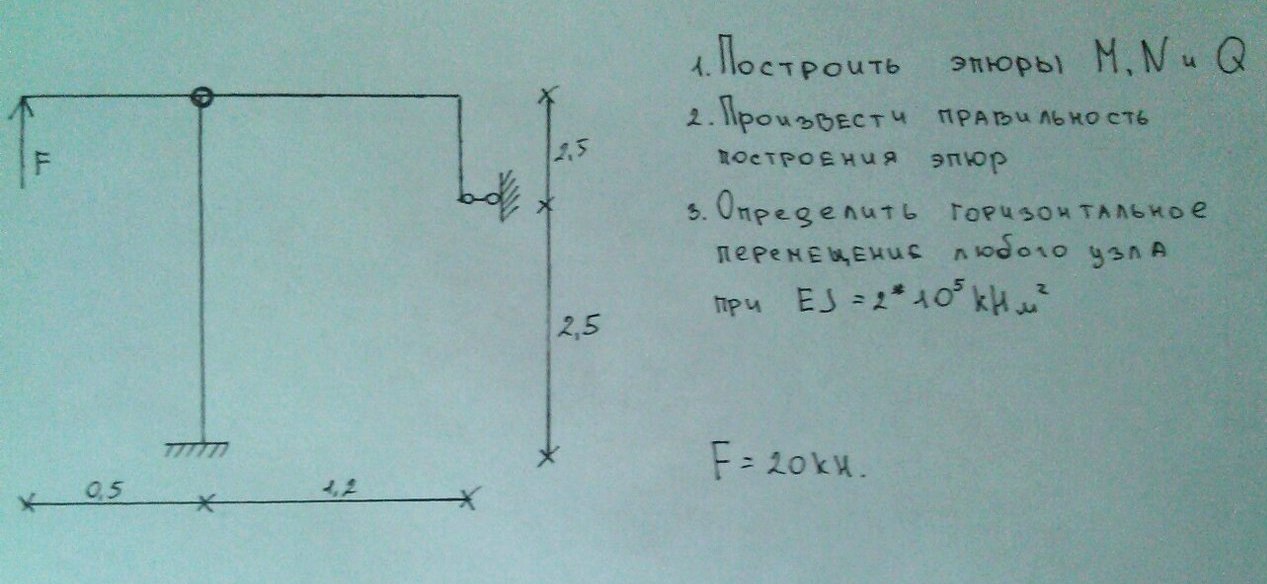 1. Построить эпюры M, N и Q
2. Произвести правильность
построения эпюр
3. Определить горизонтальное
перемещение любого узла
при EJ = 2*10⁵ кНм²
F = 20 кн.
F
2,5
2,5
0,5 1,2